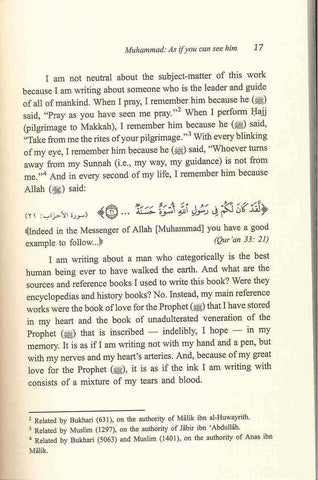 Muhammad: As if you can see him 17
I am not neutral about the subject-matter of this work
because I am writing about someone who is the leader and guide
of all of mankind. When I pray, I remember him because he (ﷺ)
said, “Pray as you have seen me pray.”2 When I perform Hajj
(pilgrimage to Makkah), I remember him because he (ﷺ) said,
“Take from me the rites of your pilgrimage.”3 With every blinking
of my eye, I remember him because he (ﷺ) said, “Whoever turns
away from my Sunnah (i.e., my way, my guidance) is not from
me.”4 And in every second of my life, I remember him because
Allah (ﷻ) said:
﴿لَّقَدْ كَانَ لَكُمْ فِي رَسُولِ ٱللَّهِ أُسْوَةٌ حَسَنَةٌ ... ۝٢١﴾ (سورة الأحزاب: ٢١)
﴾Indeed in the Messenger of Allah [Muhammad] you have a good
example to follow...﴿ (Qur’an 33: 21)
I am writing about a man who categorically is the best
human being ever to have walked the earth. And what are the
sources and reference books I used to write this book? Were they
encyclopedias and history books? No. Instead, my main reference
works were the book of love for the Prophet (ﷺ) that I have stored
in my heart and the book of unadulterated veneration of the
Prophet (ﷺ) that is inscribed – indelibly, I hope – in my
memory. It is as if I am writing not with my hand and a pen, but
with my nerves and my heart’s arteries. And, because of my great
love for the Prophet (ﷺ), it is as if the ink I am writing with
consists of a mixture of my tears and blood.
2 Related by Bukhari (631), on the authority of Mâlik ibn al-Huwayrith.
3 Related by Muslim (1297), on the authority of Jâbir ibn ‘Abdullâh.
4 Related by Bukhari (5063) and Muslim (1401), on the authority of Anas ibn
Mâlik.